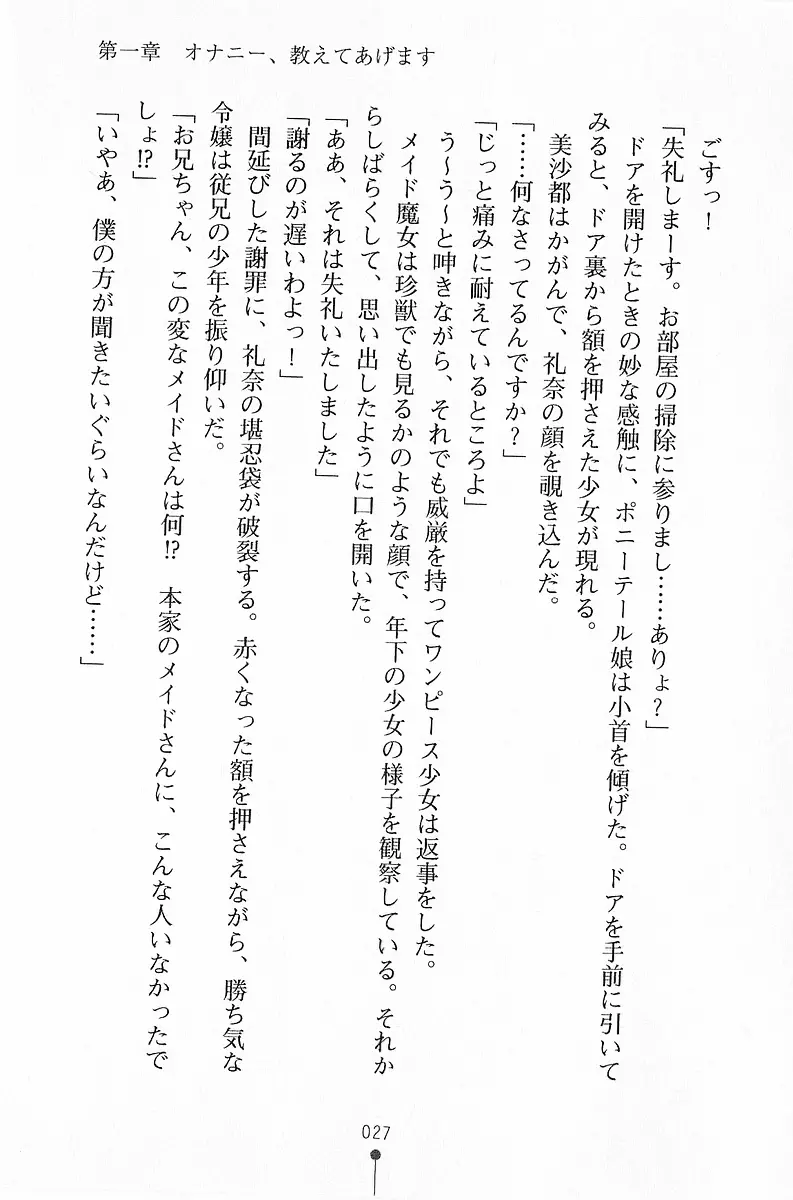 第一章　オナニー、教えてあげます
ごすっ！
「失礼しまーす。お部屋の掃除に参りまし……ありょ？」
ドアを開けたときの妙な感触に、ポニーテール娘は小首を傾げた。ドアを手前に引いて
みると、ドア裏から額を押さえた少女が現れる。
美沙都はかがんで、礼奈の顔を覗き込んだ。
「……何なさってるんですか？」
「じっと痛みに耐えているところよ」
う〜う〜と呻きながら、それでも威厳を持ってワンピース少女は返事をした。
メイド魔女は珍獣でも見るかのような顔で、年下の少女の様子を観察している。それか
らしばらくして、思い出したように口を開いた。
「ああ、それは失礼いたしました」
「謝るのが遅いわよっ！」
間延びした謝罪に、礼奈の堪忍袋が破裂する。赤くなった額を押さえながら、勝ち気な
令嬢は従兄の少年を振り仰いだ。
「お兄ちゃん、この変なメイドさんは何!?　本家のメイドさんに、こんな人いなかったで
しょ!?」
「いやぁ、僕の方が聞きたいぐらいなんだけど……」
027